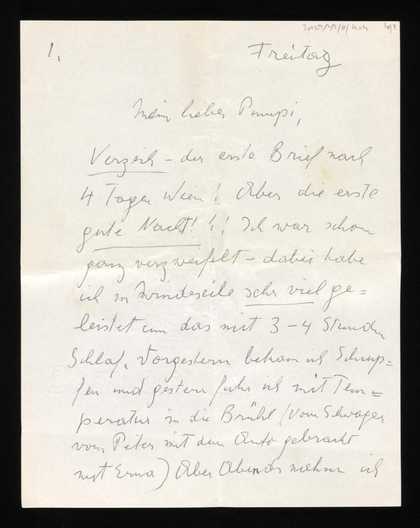 1.
Freitag
Mein lieber Pumpi,
Verzeih – der erste Brief nach
4 Tagen Wien! Aber die erste
gute Nacht!!! Ich war schon
ganz verzweifelt – dabei habe
ich in Windeseile sehr viel ge=
leistet um das mit 3–4 Stunden
Schlaf. Vorgestern bekam ich Schnup-
fen und gestern fuhr ich mit Tem=
peratur in die Brühl (vom Schwager
vom Peter mit dem Auto gebracht
mit Erna) Aber Abends nahm ich